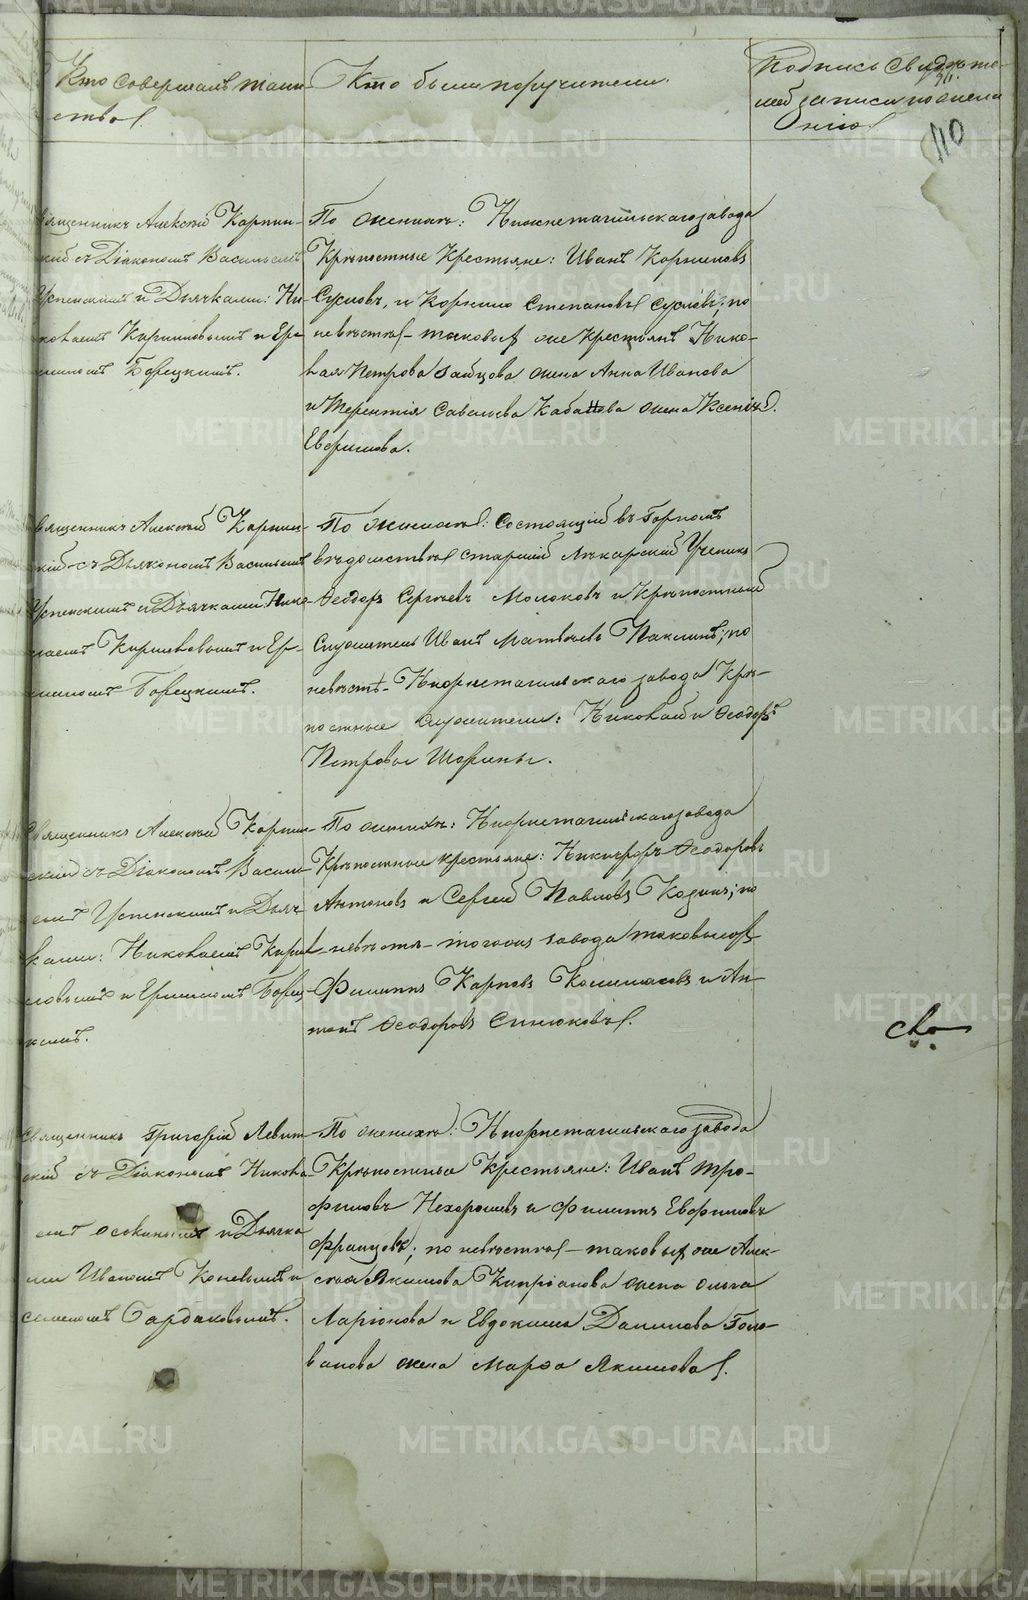 Кто совершалъ таин-
ство.
Кто были поручители.
Подпись свидѣте-
лей записи по жела-
нію
110
Священникъ Алексѣй Карпин-
скій съ Діакономъ Васильемъ
Успенскимъ и Дьячками: Ни-
колаемъ Кирилловымъ и Ер-
миломъ Борецкимъ.
По женихѣ: Нижнетагильскаго завода
Крѣпостные Крестьяне: Иванъ Корниловъ
Сусловъ, и Корнило Степановъ Сусловъ; по
невѣстѣ – таковыхъ же крестьянъ Нико-
лая Петрова Зайцова жена Анна Иванова
и Терентія Савельева Кабанова жена Ксенія
Евфимова.
Священникъ Алексѣй Карпин-
скій съ Дьякономъ Васильемъ
Успенскимъ и Дьячками Нико-
лаемъ Кирилловымъ и Ер-
миломъ Борецкимъ.
По женихѣ: Состоящій въ Горномъ
вѣдомствѣ старшій Лѣкарскій Ученикъ
Ѳеодоръ Сергѣевъ Молоковъ и Крѣпостный
Служитель Иванъ Матвѣевъ Паклинъ; по
невѣстѣ – Нижнетагильскаго завода Крѣ-
постные служители: Николай и Ѳеодоръ
Петровы Шорины.
Священникъ Алексѣй Карпин-
скій съ Діакономъ Василь-
емъ Успенскимъ и Дьяч-
ками: Николаемъ Кирил-
ловымъ и Ермиломъ Борец-
кимъ.
По женихѣ: Нижнетагильскаго завода
Крѣпостные крестьяне: Никифоръ Ѳеодоровъ
Антоновъ и Сергей Павловъ Козинъ; по
невѣстѣ – того же завода таковые же
Филиппъ Карповъ и Ан-
тонъ Ѳеодоровъ Синюковъ.
Священникъ Григорій Левит-
скій съ Діакономъ Никола-
емъ Осокинымъ и Дьячка-
ми Иваномъ Коневымъ и
Семеномъ Бардаковымъ.
По женихѣ: Нижнетагильскаго завода
Крѣпостные Крестьяне: Иванъ Тро-
фимовъ Нехорошевъ и Филиппъ Евфимовъ
Францовъ; по невѣстѣ – таковыхъ же Алек-
сѣя Якимова Кипріанова жена Ольга
Ларіонова и Евдокима Данилова Голо-
ванова жена Марѳа Якимова.
METRIKI.GASO-URAL.RU